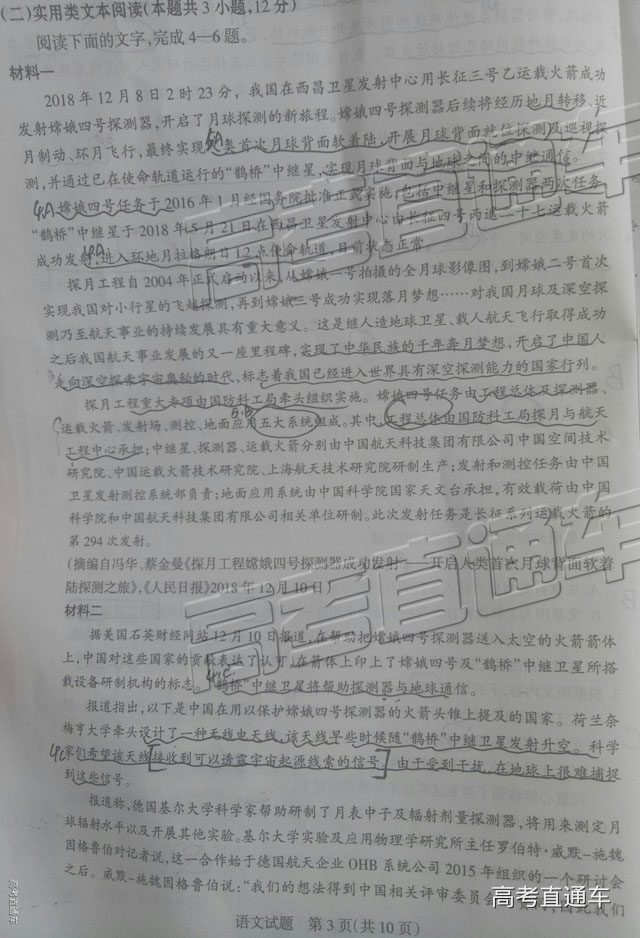 (二)实用类文本阅读(本题共3小题,12分)
阅读下面的文字,完成4—6题。
材料一
2018年12月8日2时23分,我国在西昌卫星发射中心用长征三号乙运载火箭成功
发射嫦娥四号探测器,开启了月球探测的新旅程。嫦娥四号探测器后续将经历地月转移、近
月制动、环月飞行,最终实现人类首次月球背面软着陆,开展月球背面就位探测及巡视探
测,并通过已在使命轨道运行的“鹊桥”中继星,实现月球背面与地球之间的中继通信。
4A 嫦娥四号任务于2016年1月经国务院批准正式实施,包括中继星和探测器两次任务。
“鹊桥”中继星于2018年5月21日在西昌卫星发射中心由长征四号丙遥二十七运载火箭
成功发射,进入环地月拉格朗日L2点使命轨道,目前状态正常。
探月工程自2004年正式启动以来,从嫦娥一号拍摄的全月球影像图,到嫦娥二号首次
实现我国对小行星的飞越探测,再到嫦娥三号成功实现落月梦想……对我国月球及深空探
测乃至航天事业的持续发展具有重大意义。这是继人造地球卫星、载人航天飞行取得成功
之后我国航天事业发展的又一座里程碑,实现了中华民族的千年奔月梦想,开启了中国人
走向深空探索宇宙奥秘的时代,标志着我国已经进入世界具有深空探测能力的国家行列。
探月工程重大专项由国防科工局牵头组织实施。嫦娥四号任务由工程总体及探测器、
运载火箭、发射场、测控、地面应用五大系统组成。其中,工程总体由国防科工局探月与航天
工程中心承担;中继星、探测器、运载火箭分别由中国航天科技集团有限公司中国空间技术
研究院、中国运载火箭技术研究院、上海航天技术研究院研制生产;发射和测控任务由中国
卫星发射测控系统部负责;地面应用系统由中国科学院国家天文台承担,有效载荷由中国
科学院和中国航天科技集团有限公司相关单位研制。此次发射任务是长征系列运载火箭的
第294次发射。
(摘编自冯华、蔡金曼《探月工程嫦娥四号探测器成功发射——开启人类首次月球背面软着
陆探测之旅》,《人民日报》2018年12月10日)
材料二
据美国石英财经网站12月10日报道,在帮助把嫦娥四号探测器送入太空的火箭箭体
上,中国对这些国家的贡献表达了认可,在箭体上印上了嫦娥四号及“鹊桥”中继卫星所搭
载设备研制机构的标志。“鹊桥”中继卫星将帮助探测器与地球通信。
报道指出,以下是中国在用以保护嫦娥四号探测器的火箭头锥上提及的国家。荷兰奈
梅亨大学牵头设计了一种无线电天线,该天线早些时候随“鹊桥”中继卫星发射升空。科学
4C 家们希望该天线[接收到可以透露宇宙起源线索的信号]。由于受到干扰,在地球上很难捕捉
到这些信号。
报道称,德国基尔大学科学家帮助研制了月表中子及辐射剂量探测器,将用来测定月
球辐射水平以及开展其他实验。基尔大学实验及应用物理学研究所主任罗伯特·威默-施魏
因格鲁伯对记者说,这一合作始于德国航天企业OHB系统公司2015年组织的一个研讨会
之后。威默-施魏因格鲁伯说:“我们的想法得到中国相关评审委员会 因此我们
语文试题 第3页(共10页)
高考直通车
高考直通车
高考直通车
高考直通车